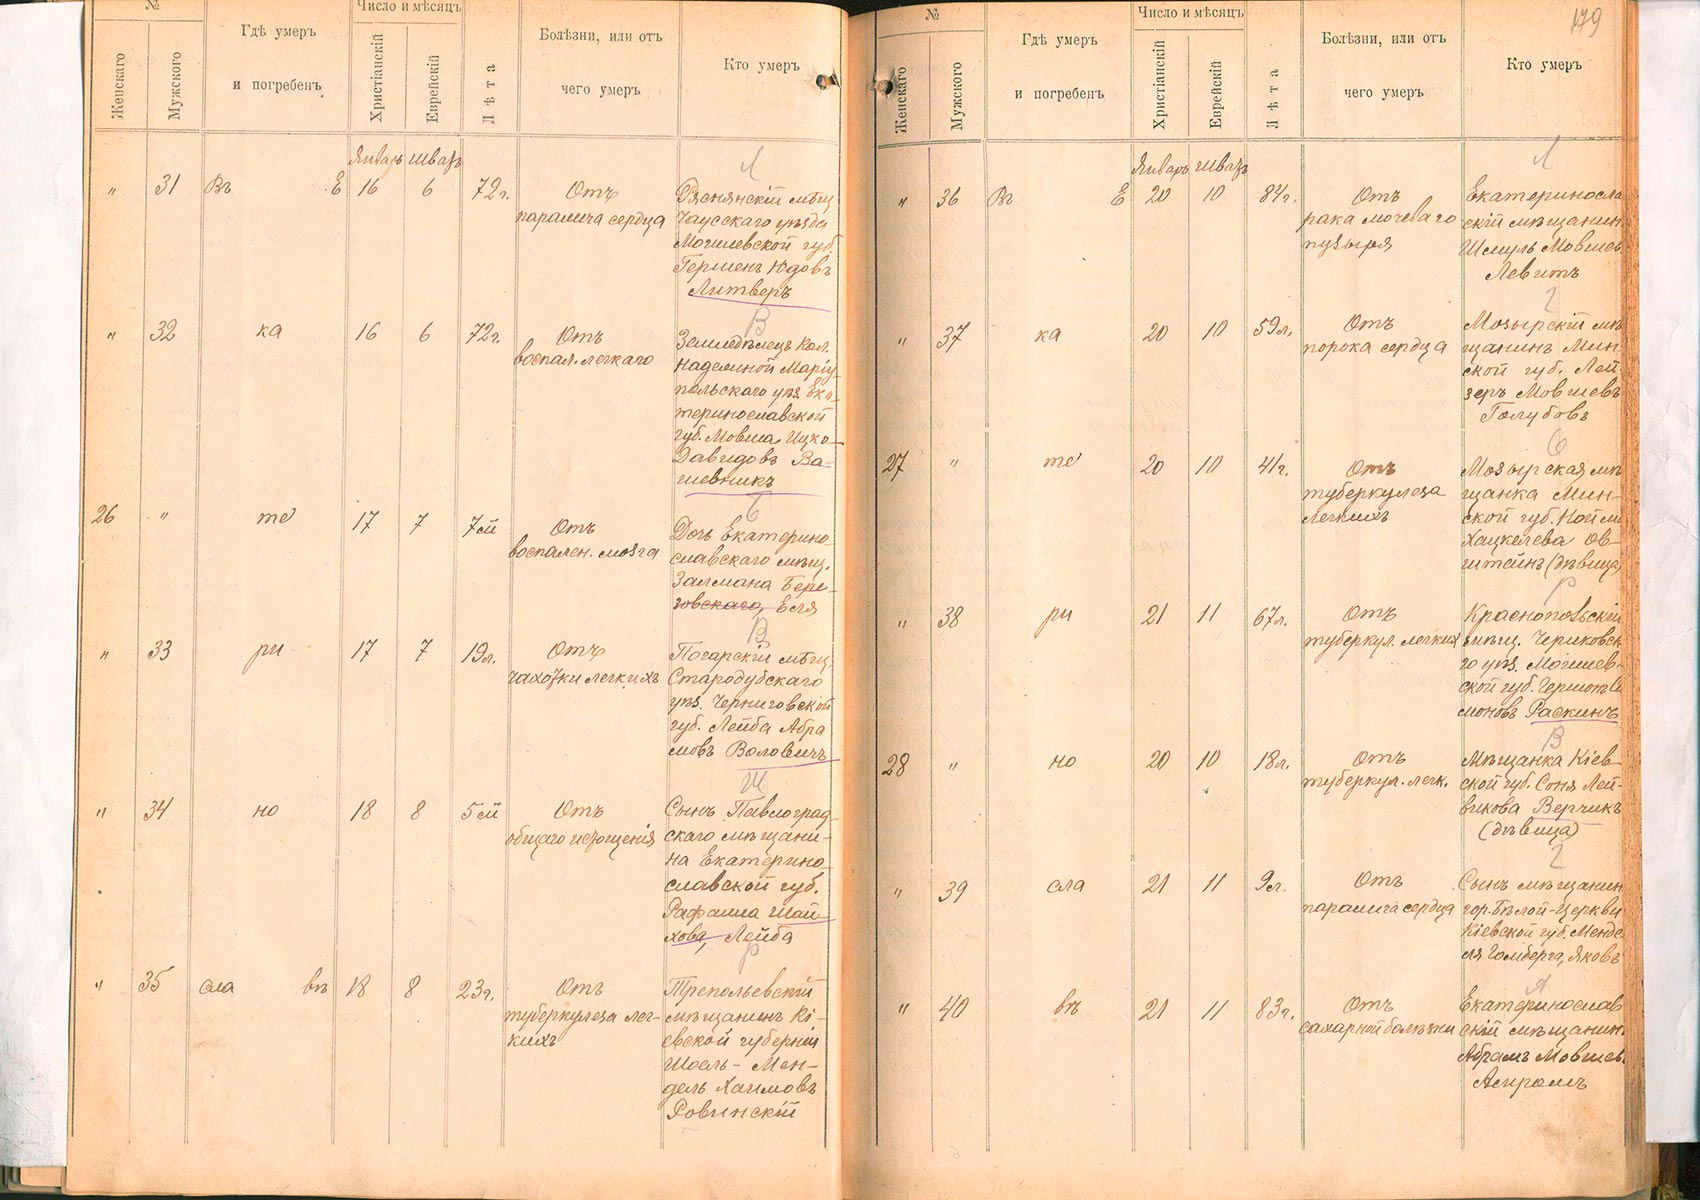 №
Число и мѣсяцъ
Женскаго
Мужского
Гдѣ умеръ
и погребенъ
Христіанскій
Еврейскій
Лѣта
Болѣзни, или отъ
чего умеръ
Кто умеръ
Январь Шватъ
Л
" 31 Въ Е 16 6 72 г.
Отъ
паралича сердца
Ряснянскій мѣщ.
Чаусскаго уѣзда
Могилевской губ.
Гершенъ Юдовъ
Литверъ
В
" 32 ка 16 6 72 г.
Отъ
воспал. легкаго
Землѣделецъ Кол.
Надежной Маріу-
польскаго уѣз. Ека-
теринославской
губ. Мовша Ицко-
Давидовъ Ва-
шевникъ
Б
26 " те 17 7 7 м
Отъ
воспален. мозга
Дочь Екатерино-
славскаго мѣщ.
Залмана Бере-
зовскаго, Еся
В
" 33 ри 17 7 19 л.
Отъ
чахотки легкихъ
Погарскій мѣщ.
Стародубскаго
уѣз. Черниговской
губ. Лейба Абра
мовъ Воловичъ
Ш
" 34 но 18 8 5 м
Отъ
общаго истощенія
Сынъ Павлоград-
скаго мѣщани-
на Екатерино
славской губ.
Рафаила Шай
хова, Лейба
Р
" 35 сла въ 18 8 23 г.
Отъ
туберкулеза лег-
кихъ
Трепольевскій
мѣщанинъ Кі-
евской губерніи
Шоель-Мен-
дель Хаимовъ
Ровинскій
179
№
Число и мѣсяцъ
Женскаго
Мужского
Гдѣ умеръ
и погребенъ
Христіанскій
Еврейскій
Лѣта
Болѣзни, или отъ
чего умеръ
Кто умеръ
Январь Шватъ
Л
" 36 Въ Е 20 10 84 г.
Отъ
рака мочеваго
пузыря
Екатеринослав
скій мѣщанин
Шмуль Мовшев
Левитъ
Г
" 37 ка 20 10 59 л.
Отъ
порока сердца
Мозырскій мѣ
щанинъ Мин-
ской губ. Лей
зеръ Мовшевъ
Голубовъ
27 " те 20 10 41 г.
Отъ
туберкулеза
легкихъ
Мозырская мѣ
щанка Мин-
ской губ.
Хацкелева Ов-
штейнъ (дѣвица)
Р
" 38 ри 21 11 67 л.
Отъ
туберкул. легких
Краснопольскій
мѣщ. Чериковск
го уѣз. Могилев-
ской губ.
моновъ Раскинъ
В
28 " но 20 10 18 л.
Отъ
туберкул. легк.
Мѣщанка Кіев-
ской губ. Соня Лей-
викова Верчикъ
(дѣвица)
Г
" 39 сла 21 11 9 л.
Отъ
паралича сердца
Сынъ мѣщанин
гор. Бѣлой-Церкви
Кіевской губ. Менде
ля Гомберга, Яковъ
А
" 40 въ 21 11 83 г.
Отъ
сахарной болѣзни
Екатеринослав
скій мѣщанинъ
Абрамъ Мовшев
Агиромъ